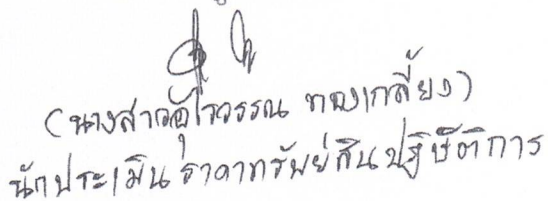 (นางสาวอุไรวรรณ ทองเกลี้ยง)
นักประเมินราคาทรัพย์สินปฏิบัติการ